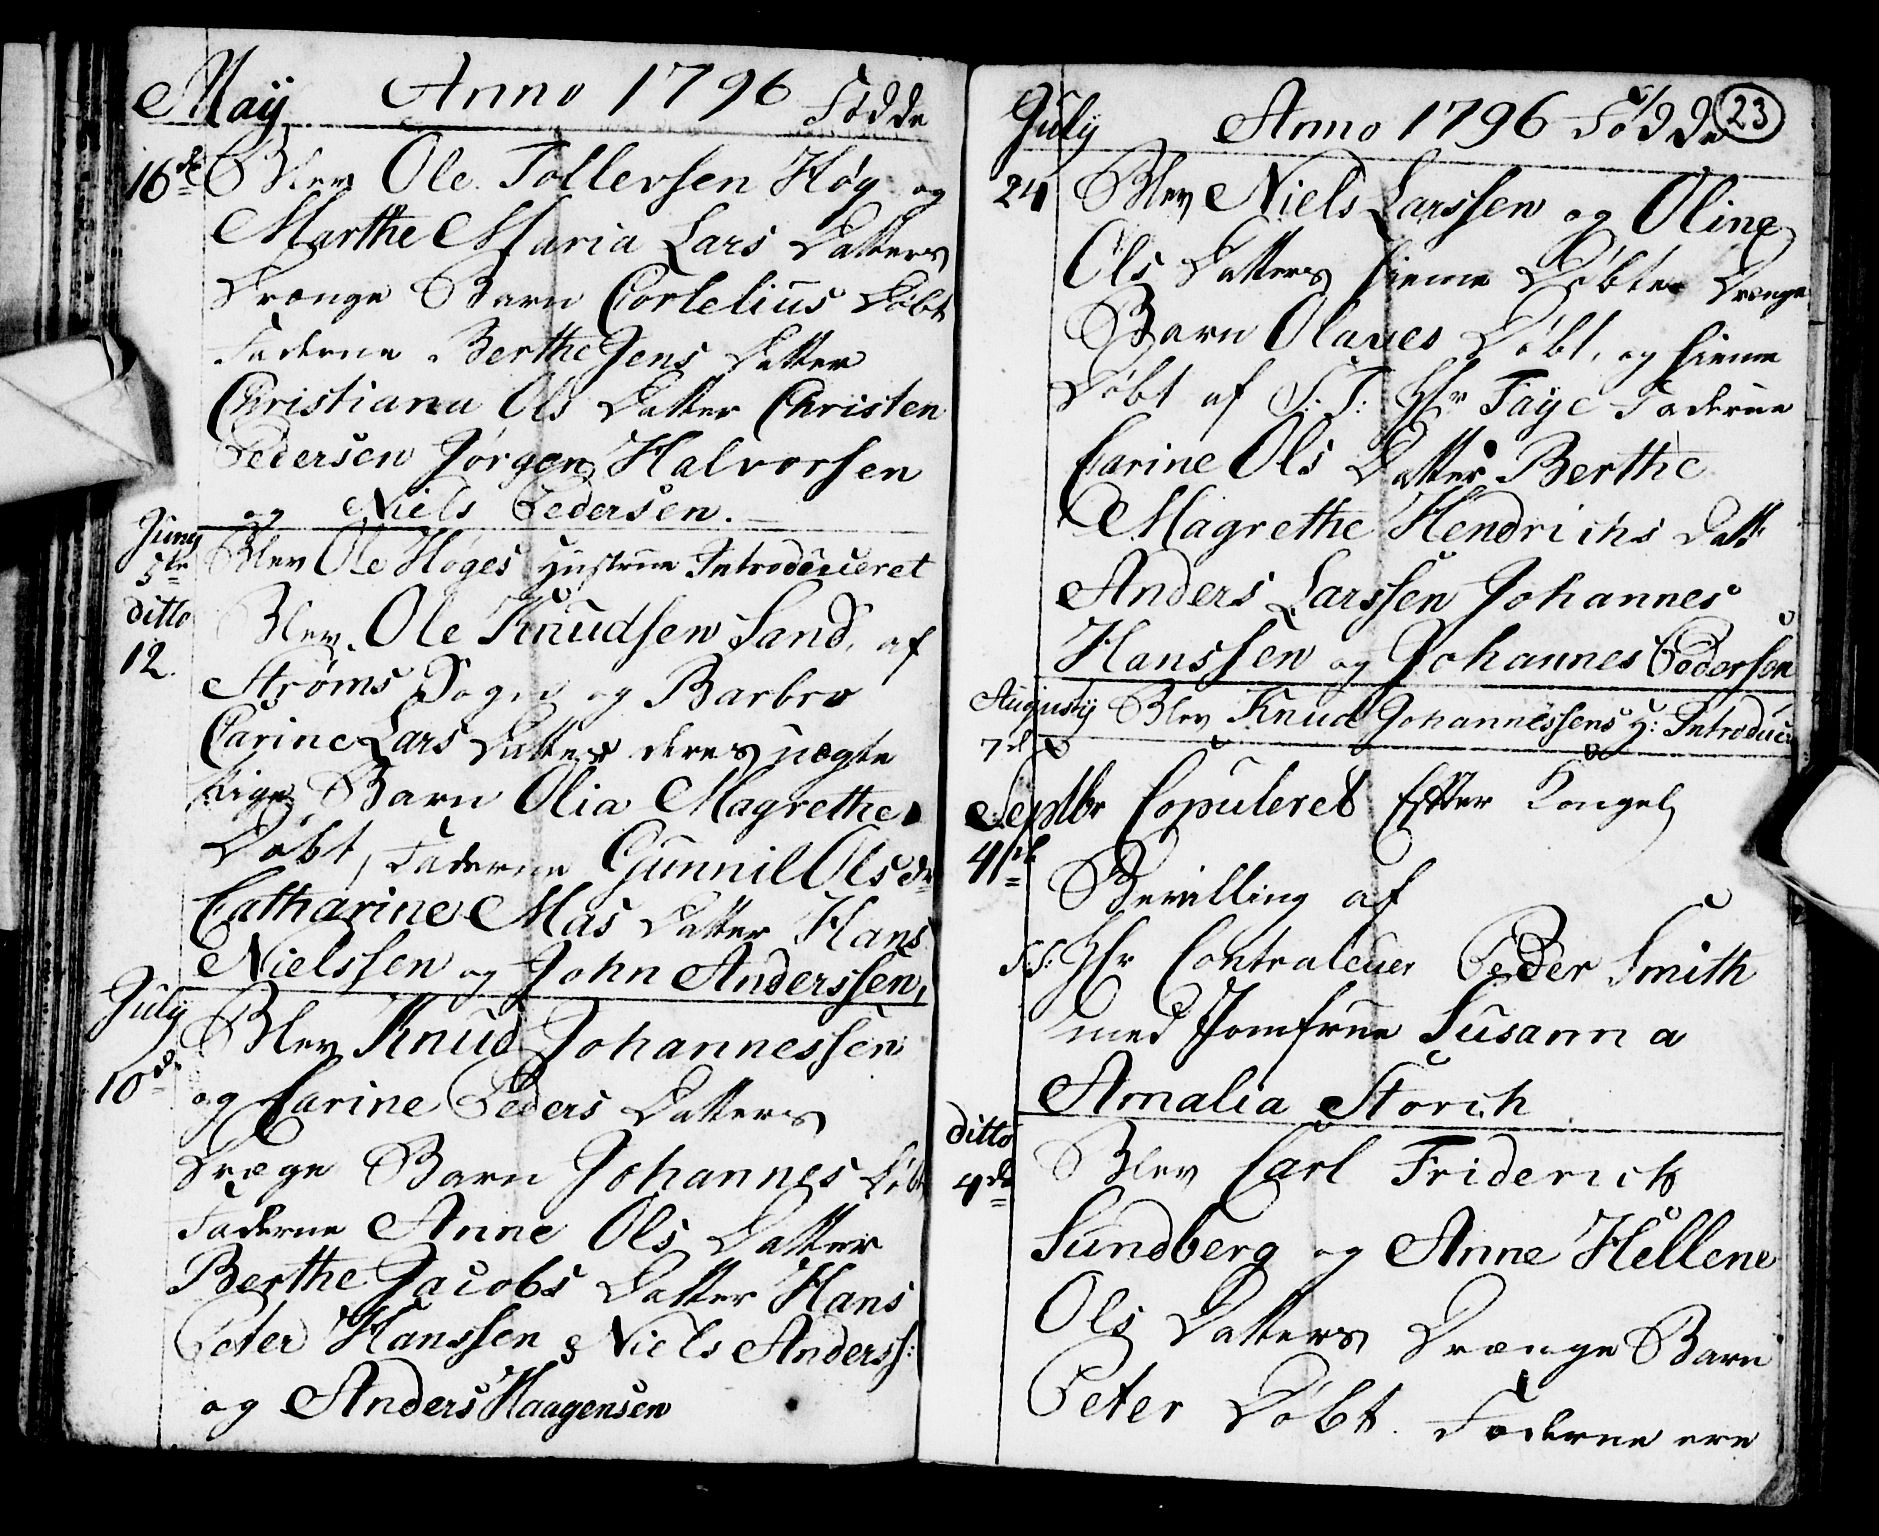 Maÿ Anno 1796 Fødde
16de Blev Ole Tollevsen Høg og
Marthe Maria Lars Datters
Drænge Barn Corlelius Døbt
Faderne Berthe Jens Datter
Christiana Ols Datter Christen
Pedersen Jørgen Halvorsen
og Niels Pedersen.
Juny
5te Blev Ole Høges Hustrue Introduceret
ditto
12. Blev Ole Knudsen Sand, af
Strøms Sogn og Barbro
Carine Lars Datter deres uægte
Pige Barn Olia Magrethe
Døbt, Faderne Gunnil Ols dr
Catharine Mas Datter Hans
Nielssen og John Anderssen,
July
10de Blev Knud Johannessen
og Carine Peders Datters
Dræge Barn Johannes Døbt
Faderne Anne Ols Datter
Berthe Jacobs Datter Hans
Peter Hanssen & Niels Anderss:
og Anders Haagensen
July Anno 1796 Fødde 23
24 Blev Niels Larssen og Oline
Ols Datters hieme Døbte Drænge
Barn Olaves Døbt, og hieme
Døbt af S:T: Hr Faye Faderne
Carine Ols Datter Berthe
Magrethe Hendrichs Datt
Anders Larssen Johannes
Hanssen og Johannes Pedersen
Augustÿ Blev Knud Johannessens H: Introduce
7de
Septbr Copuleret Efter Kongel
4de Bevilling af
S:S: Hr Contraleur Peder Smith
med Jomfrue Susanna
Amalia Storch
ditto
4de Blev Carl Friderich
Sundberg og Anne Hellene
Ols Datters Drænge Barn
Peter Døbt. Faderne ere